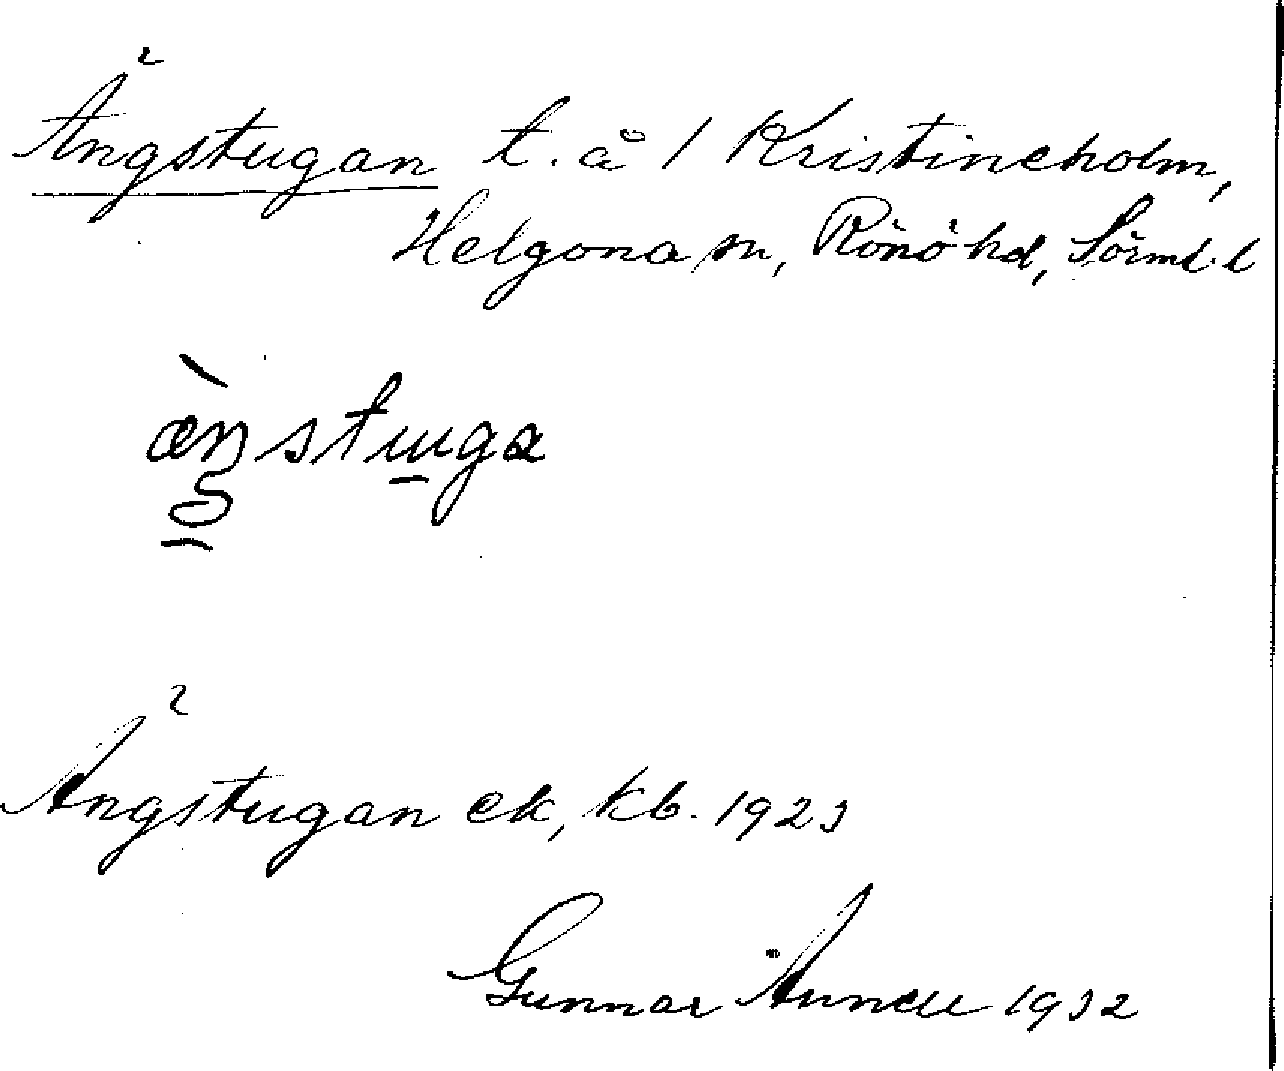 Ängstugan t. å / Kristineholm,
Helgona sn, Rönö hd, Sörml. l
æ̀ŋstuga
Ängstugan ek, kb. 1923
Gunnar 1932